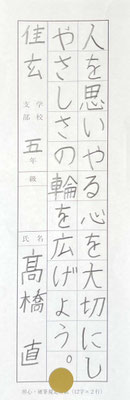 人を思いやる心を大切にし
やさしさの輪を広げよう。
佳玄 学校支部 五年級 氏名 髙橋直